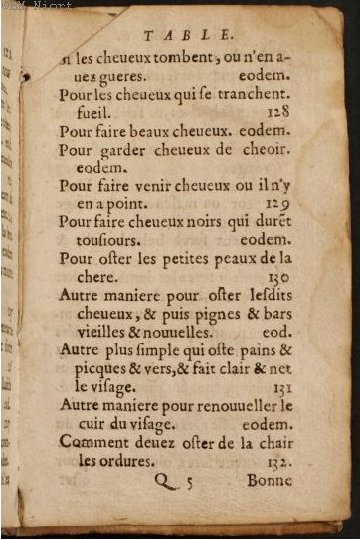 M Niort
TABLE.
si les cheueux tombent, ou n'en a-
uez gueres. eodem.
Pour les cheueux qui ſe tranchent.
fueil. 128
Pour faire beaux cheueux. eodem.
Pour garder cheueux de cheoir.
eodem.
Pour faire venir cheueux ou il n'y
en a point. 129
Pour faire cheueux noirs qui durẽt
touſiours. eodem.
Pour oſter les petites peaux de la
chere. 130
Autre maniere pour oſter leſdits
cheueux, & puis pignes & bars
vieilles & nouuelles. eod.
Autre plus ſimple qui oſte pains &
picques & vers, & fait clair & net
le viſage. 131
Autre maniere pour renouueller le
cuir du viſage. eodem.
Comment deuez oſter de la chair
les ordures. 132.
Q 5 Bonne